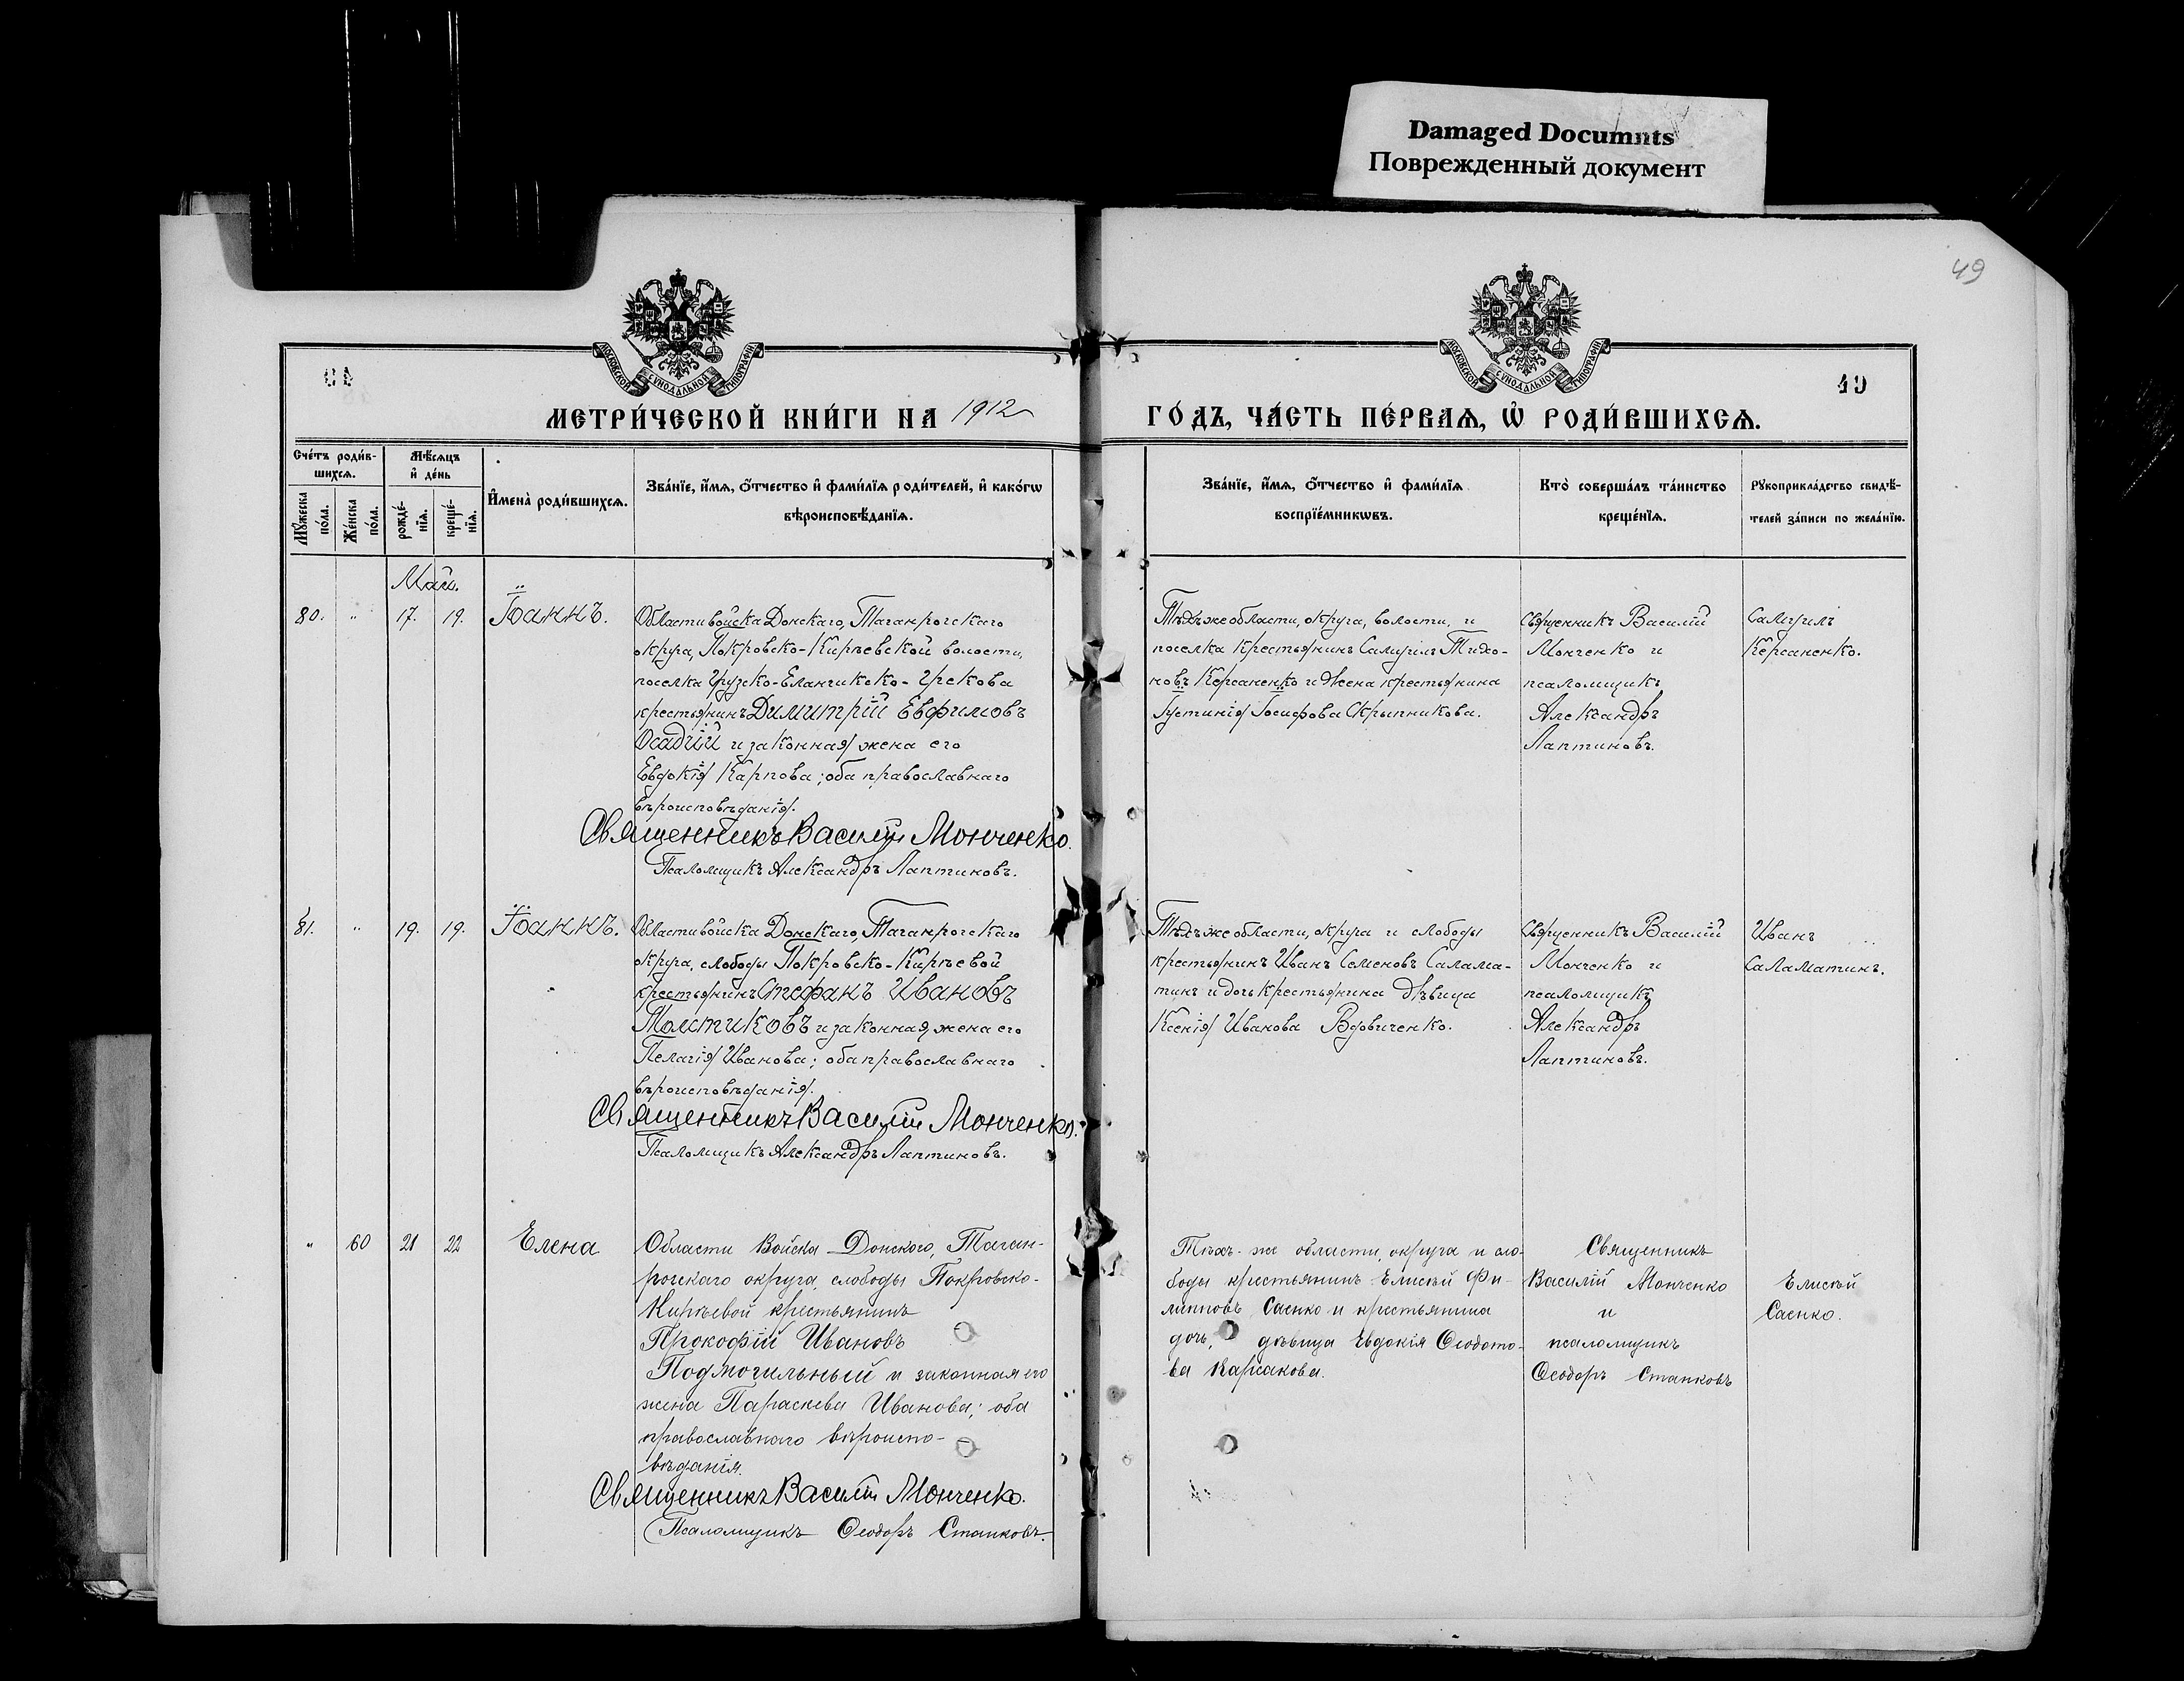 Damaged Documnts
Поврежденный документ
49
МОСКОВСКОЙ СѴНОДАЛЬНОЙ ТИПОГРАФІИ
МОСКОВСКОЙ СѴНОДАЛЬНОЙ ТИПОГРАФІИ
49
МЕТРИ́ЧЕСКОЙ КНИ́ГИ НА 1912
ГО́ДЪ, ЧА́СТЬ ПЕ́РВАѦ, Ѡ҆ РОДИ́ВШИХСѦ.
Сче́тъ роди́в-
шихсѧ.
Мѣ́сѧцъ
и҆ де́нь
Мꙋ́жеска
по́ла.
Же́нска
по́ла.
рожде́-
нїѧ.
креще́-
нїѧ.
И҆мена̀ роди́вшихсѧ.
Зва́нїе, и҆́мѧ, ѻ҆́тчество и҆ фами́лїѧ роди́телей, и҆ како́гѡ
вѣроисповѣ́данїѧ.
Зва́нїе, и҆́мѧ, ѻ҆́тчество и҆ фами́лїѧ
воспрїе́мникѡвъ.
Кто̀ соверша́лъ та́инство
креще́нїѧ.
Рꙋкоприкла́дство свидѣ́-
телей за́писи по жела́нїю.
Май.
80. " 17. 19. Іоаннъ.
Области войска Донскаго, Таганрогскаго
округа, Покровско-Кирѣевской волости,
поселка Грузско-Еланчикско-Грекова
крестьянинъ Димитрій Евфимовъ
Осадчій и законная жена его
Евдокія Карпова; оба православнаго
вѣроисповѣданія.
Священникъ Василій Монченко.
Псаломщикъ Александръ Лаптиновъ.
Тѣхъ же области, округа, волости, и
поселка крестьянинъ Самуилъ Тихо-
новъ Керсаненко и жена крестьянина
Іустинія Іосифова Скрыпникова.
Священникъ Василій
Монченко и
псаломщикъ
Александръ
Лаптиновъ.
Самуилъ
Керсаненко.
81. " 19. 19. Іоаннъ.
Области войска Донскаго, Таганрогскаго
округа, слободы Покровско-Кирѣевой
крестьянинъ Стефанъ Ивановъ
Толстиковъ и законная жена его
Пелагія Иванова; оба православнаго
вѣроисповѣданія.
Священникъ Василій Монченко.
Псаломщикъ Александръ Лаптиновъ.
Тѣхъ же области, округа и слободы
крестьянинъ Иванъ Семеновъ Салама-
тинъ и дочь крестьянина дѣвица
Ксенія Иванова Вдовиченко.
Священникъ Василій
Монченко и
псаломщикъ
Александръ
Лаптиновъ.
Иванъ
Саламатинъ.
" 60 21 22 Елена
Области Войска Донского, Таган-
рогскаго округа, слободы Покровско-
Кирѣевой крестьянинъ
Прокофій Ивановъ
Подмогильный и законная его
жена Параскева Иванова; оба
православнаго вѣроиспо-
вѣданія.
Священникъ Василій Монченко.
Псаломщикъ Ѳеодоръ Станковъ.
Тѣхъ-же области, округа и сло-
боды крестьянинъ Елисей Фи-
липповъ Саенко и крестьянина
дочь, дѣвица Евдокія Ѳеодото-
ва Карсакова.
Священникъ
Василій Монченко
и
псаломщикъ
Ѳеодоръ Станковъ
Елисѣй
Саенко.